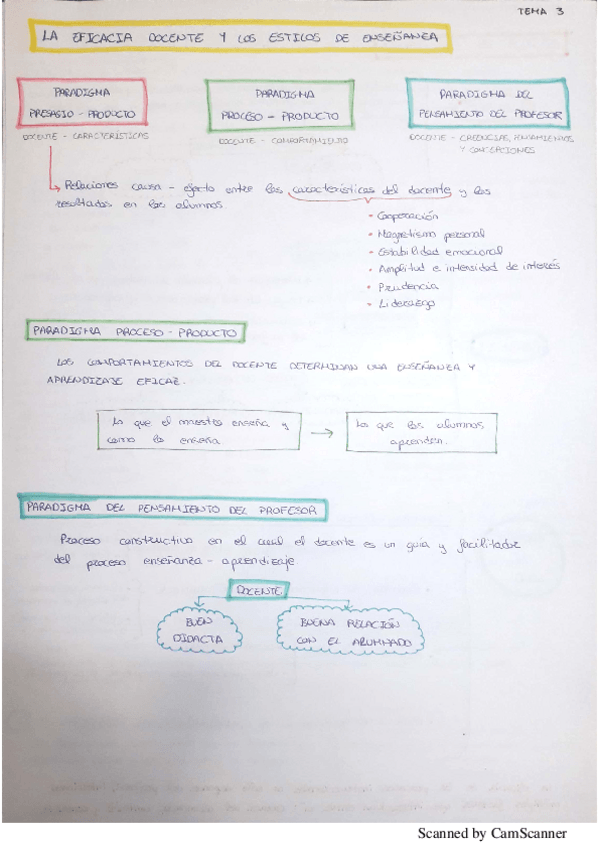 TEMA 3
LA EFICACIA DOCENTE Y LOS ESTILOS DE ENSEÑANZA
PARADIGMA
PRESAGIO - PRODUCTO
DOCENTE - CARACTERÍSTICAS
PARADIGMA
PROCESO - PRODUCTO
DOCENTE - COMPORTAMIENTO
PARADIGMA DEL
PENSAMIENTO DEL PROFESOR
DOCENTE - CREENCIAS, PENSAMIENTOS
Y CONCEPCIONES
Relaciones causa - efecto entre las características del docente y los
resultados en los alumnos.
• Cooperación
• Magnetismo personal
• Estabilidad emocional
• Amplitud e intensidad de interés
• Prudencia
• Liderazgo
PARADIGMA PROCESO - PRODUCTO
LOS COMPORTAMIENTOS DEL DOCENTE DETERMINAN UNA ENSEÑANZA Y
APRENDIZAJE EFICAZ.
Lo que el maestro enseña y
como lo enseña
→
Lo que los alumnos
aprenden.
PARADIGMA DEL PENSAMIENTO DEL PROFESOR
Proceso constructivo en el cual el docente es un guía y facilitador
del proceso enseñanza - aprendizaje
DOCENTE
BUEN
DIDACTA
BUENA RELACIÓN
CON EL ALUMNADO
Scanned by CamScanner